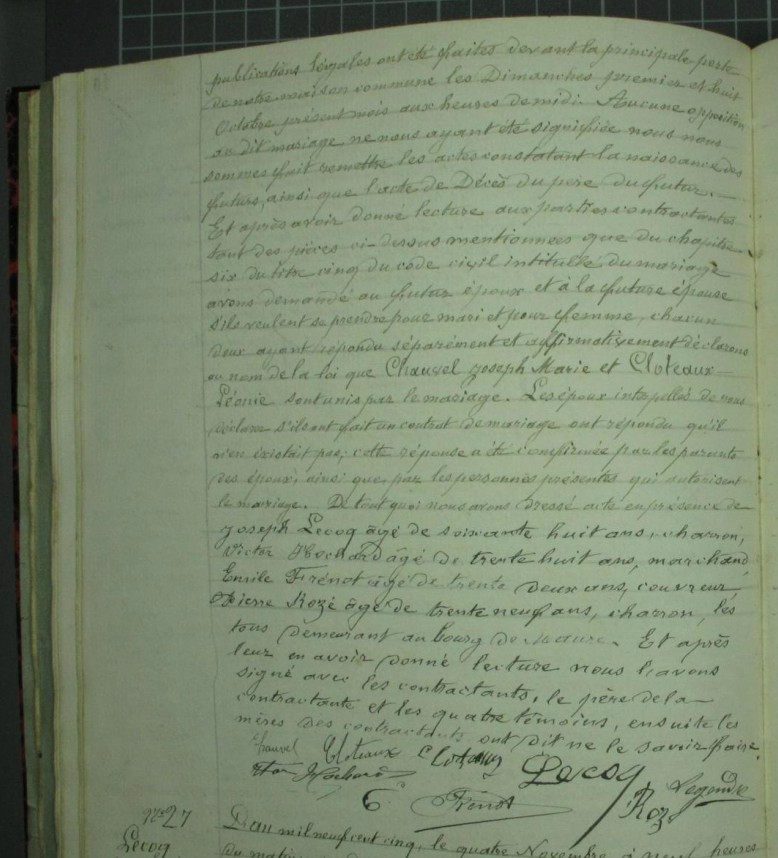 publications légales ont été faites devant la principale porte
de notre maison commune les Dimanches premier et huit
Octobre présent mois aux heures de midi. Aucune opposition
au dit mariage ne nous ayant été signifiée nous nous
sommes fait remettre les actes constatant la naissance des
futurs, ainsi que l'acte de Décès du père du futur.
Et après avoir donné lecture aux parties contractantes
tant des pièces ci-dessus mentionnées que du chapitre
six du titre cinq du code civil intitulé du mariage
avons demandé au futur époux et à la future épouse
s'ils veulent se prendre pour mari et pour femme, chacun
deux ayant répondu séparément et affirmativement déclarons
au nom de la loi que Chauvel Joseph Marie et Cloteaux
Léonie sont unis par le mariage. Les époux interpellés de nous
déclarer s'ils ont fait un contrat de mariage ont répondu qu'il
n'en existait pas; cette réponse a été confirmée par les parents
des époux, ainsi que par les personnes présentes qui autorisent
le mariage. De tout quoi nous avons dressé acte en présence de
Joseph Lecoq âgé de soixante huit ans, charron,
Victor Hochard âgé de trente huit ans, marchand
Emile Frénot âgé de trente deux ans, couvreur,
Pierre Rozé âgé de trente neuf ans, charron, les
tous demeurant au bourg de Maure. Et après
leur en avoir donné lecture nous l'avons
signé avec les contractants, le père de la
contractante et les quatre témoins, ensuite les
mères des contractants ont dit ne le savoir faire.
Chauvel Cloteaux Cloteaux Lecoq
Hochard Frénot Rozé Legendre
N° 27
Lecoq
L'an mil neuf cent cinq, le quatre Novembre à neuf heures
du matin